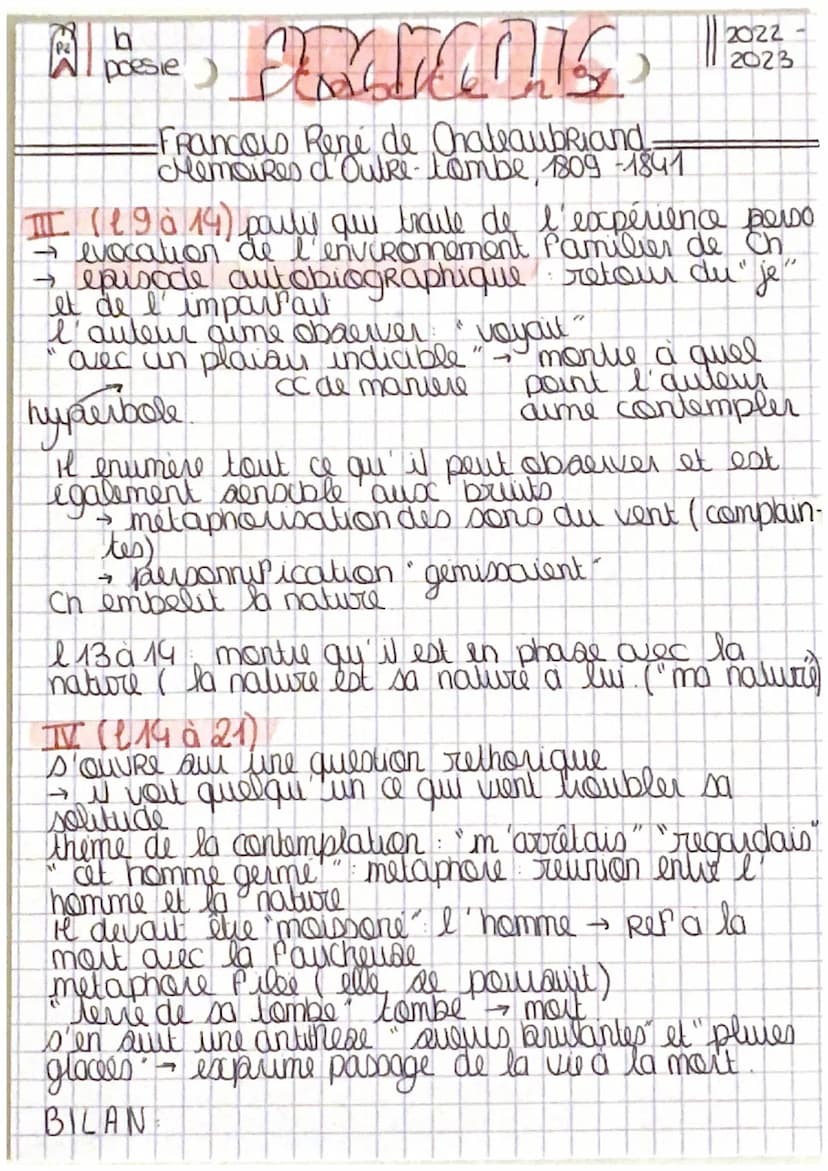 la
poésie
Français
texte n°2
2022 -
2023
François René de Chateaubriand
Memoires d'Outre-tombe, 1809 -1841
III (l 9 à 14) partie qui traite de l'expérience perso
→ evocation de l'environnement familier de Ch
→ episode autobiographique : retour du "je"
et de l'imparfait
l'auteur aime observer : "voyait"
"avec un plaisir indicible" → montre à quel
cc de maniere point l'auteur
hyperbole. aime contempler
Il enumère tout ce qu'il peut observer et est
également sensible aux bruits
→ métaphorisation des sons du vent (complain-
tes)
→ personnification "gémissaient"
Ch embelit la nature
l 13 à 14 : montre qu'il est en phase avec la
nature ( la nature est sa nature à lui. ("ma nature")
IV (l 14 à 21)
s'ouvre sur une question rethorique
→ il voit quelqu'un ce qui vient troubler sa
solitude
thème de la contemplation : "m'arrêtais" "regardais"
"cet homme germé" : metaphore : reunion entre l'
homme et la nature
Il devait être "moissoné" : l'homme → ref à la
mort avec la faucheuse
métaphore filée ( elle se poursuit)
"terre de sa tombe" tombe → mort
s'en suit une antithese "sueurs brulantes" et "pluies
glacées" → exprime passage de la vie à la mort.
BILAN :